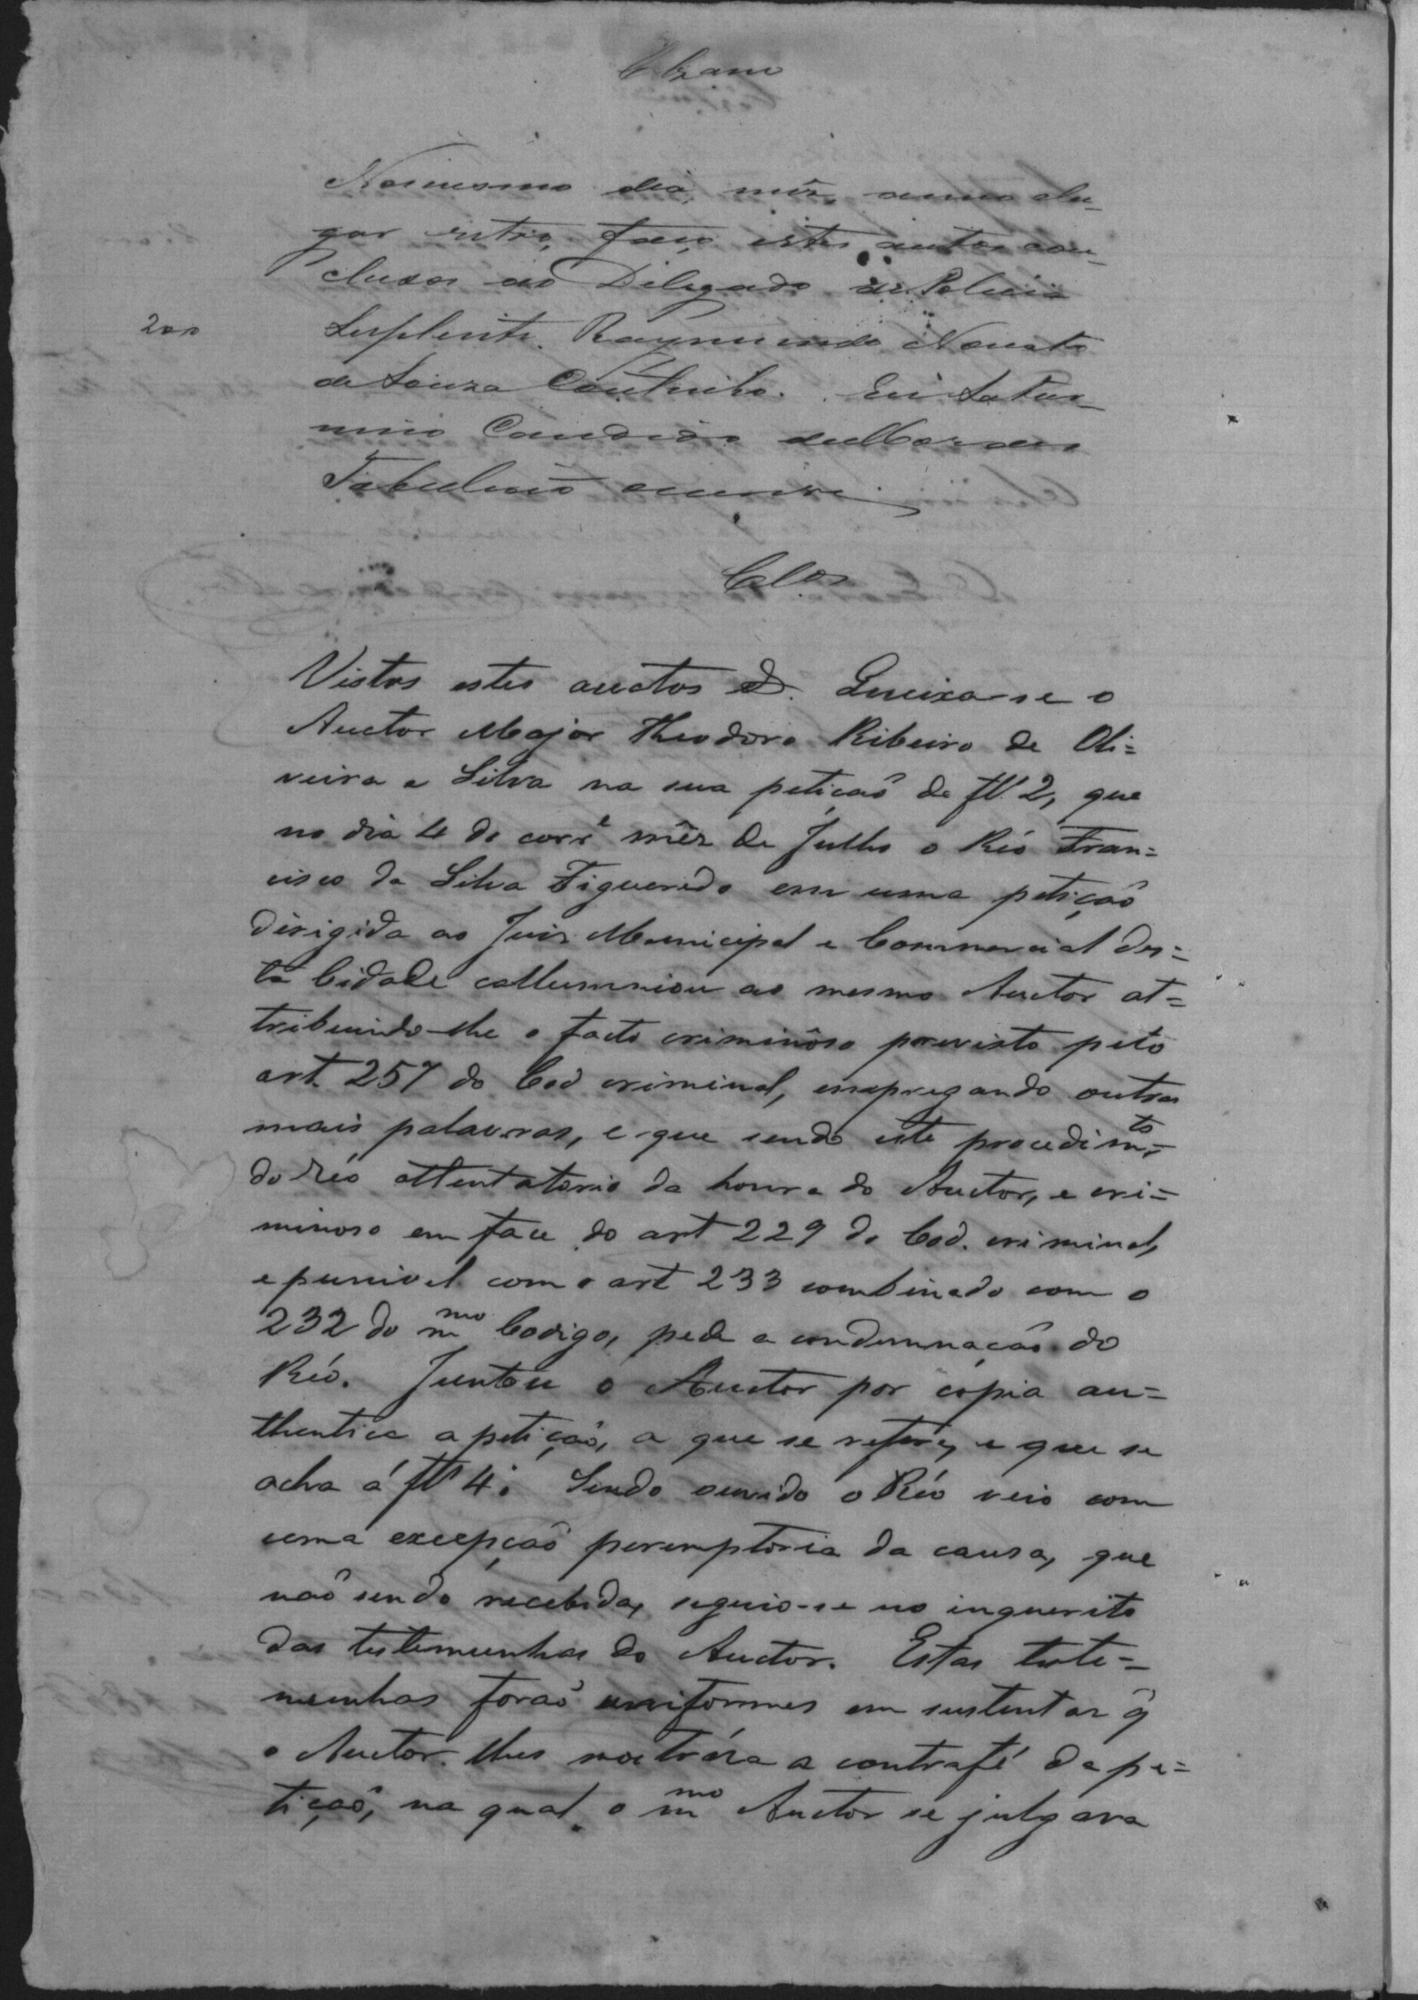 No mesmo dia, mês, anno e lu-
gar retro, faço estes autos con-
clusos ao Delegado de Policia
200
Supplente Raymundo Nonato
de Souza Coutinho. Eu Satur-
nino Candido de Moraes
Tabellião escrevi.
Clos
Vistos estes auctos &. Queixa-se o
Auctor Major Theodoro Ribeiro de Oli=
veira e Silva na sua petição de fl 2, que
no dia 4 do corre mêz de Julho o Réo Fran=
cisco da Silva Figueredo em uma petição
dirigida ao Juiz Municipal e Commercial des=
ta Cidade callumniou ao mesmo Auctor at=
tribuindo-lhe o facto criminôso previsto pelo
art. 257 do Cod criminal, empregando outras
mais palavras, e que sendo este procedimto
do réo attentatorio da honra do Auctor, e cri=
minoso em face do art 229 do Cod. criminal,
e punivel com o art 233 combinado com o
232 do mmo Codigo, pede a condemnação do
Réo. Juntou o Auctor por cópia au=
thentica a petição, a que se refere, e que se
acha á fl 4. Sendo ouvido o Réo veio com
uma excepção peremptoria da causa, que
não sendo recebida, seguio-se no inquerito
das testemunhas do Auctor. Estas teste=
munhas forão uniformes em sustentar q̃
o Auctor lhes mostrára a contrafé da pe=
tição, na qual o mmo Auctor se julgava